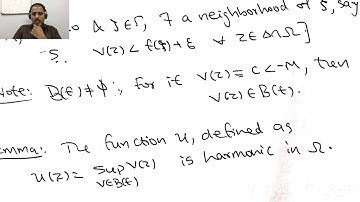 ∀ ζ∈Γ, ∃ a neighborhood of ζ, say
V(z) < f(ζ)+ε ∀ z∈Δ∩Ω]
Note: B(f) ≠ φ ∵ for if V(z) ≡ C < -M, then
V(z) ∈ B(f).
emma: The function u, defined as
u(z) = sup V(z) is harmonic in Ω.
V∈B(f)